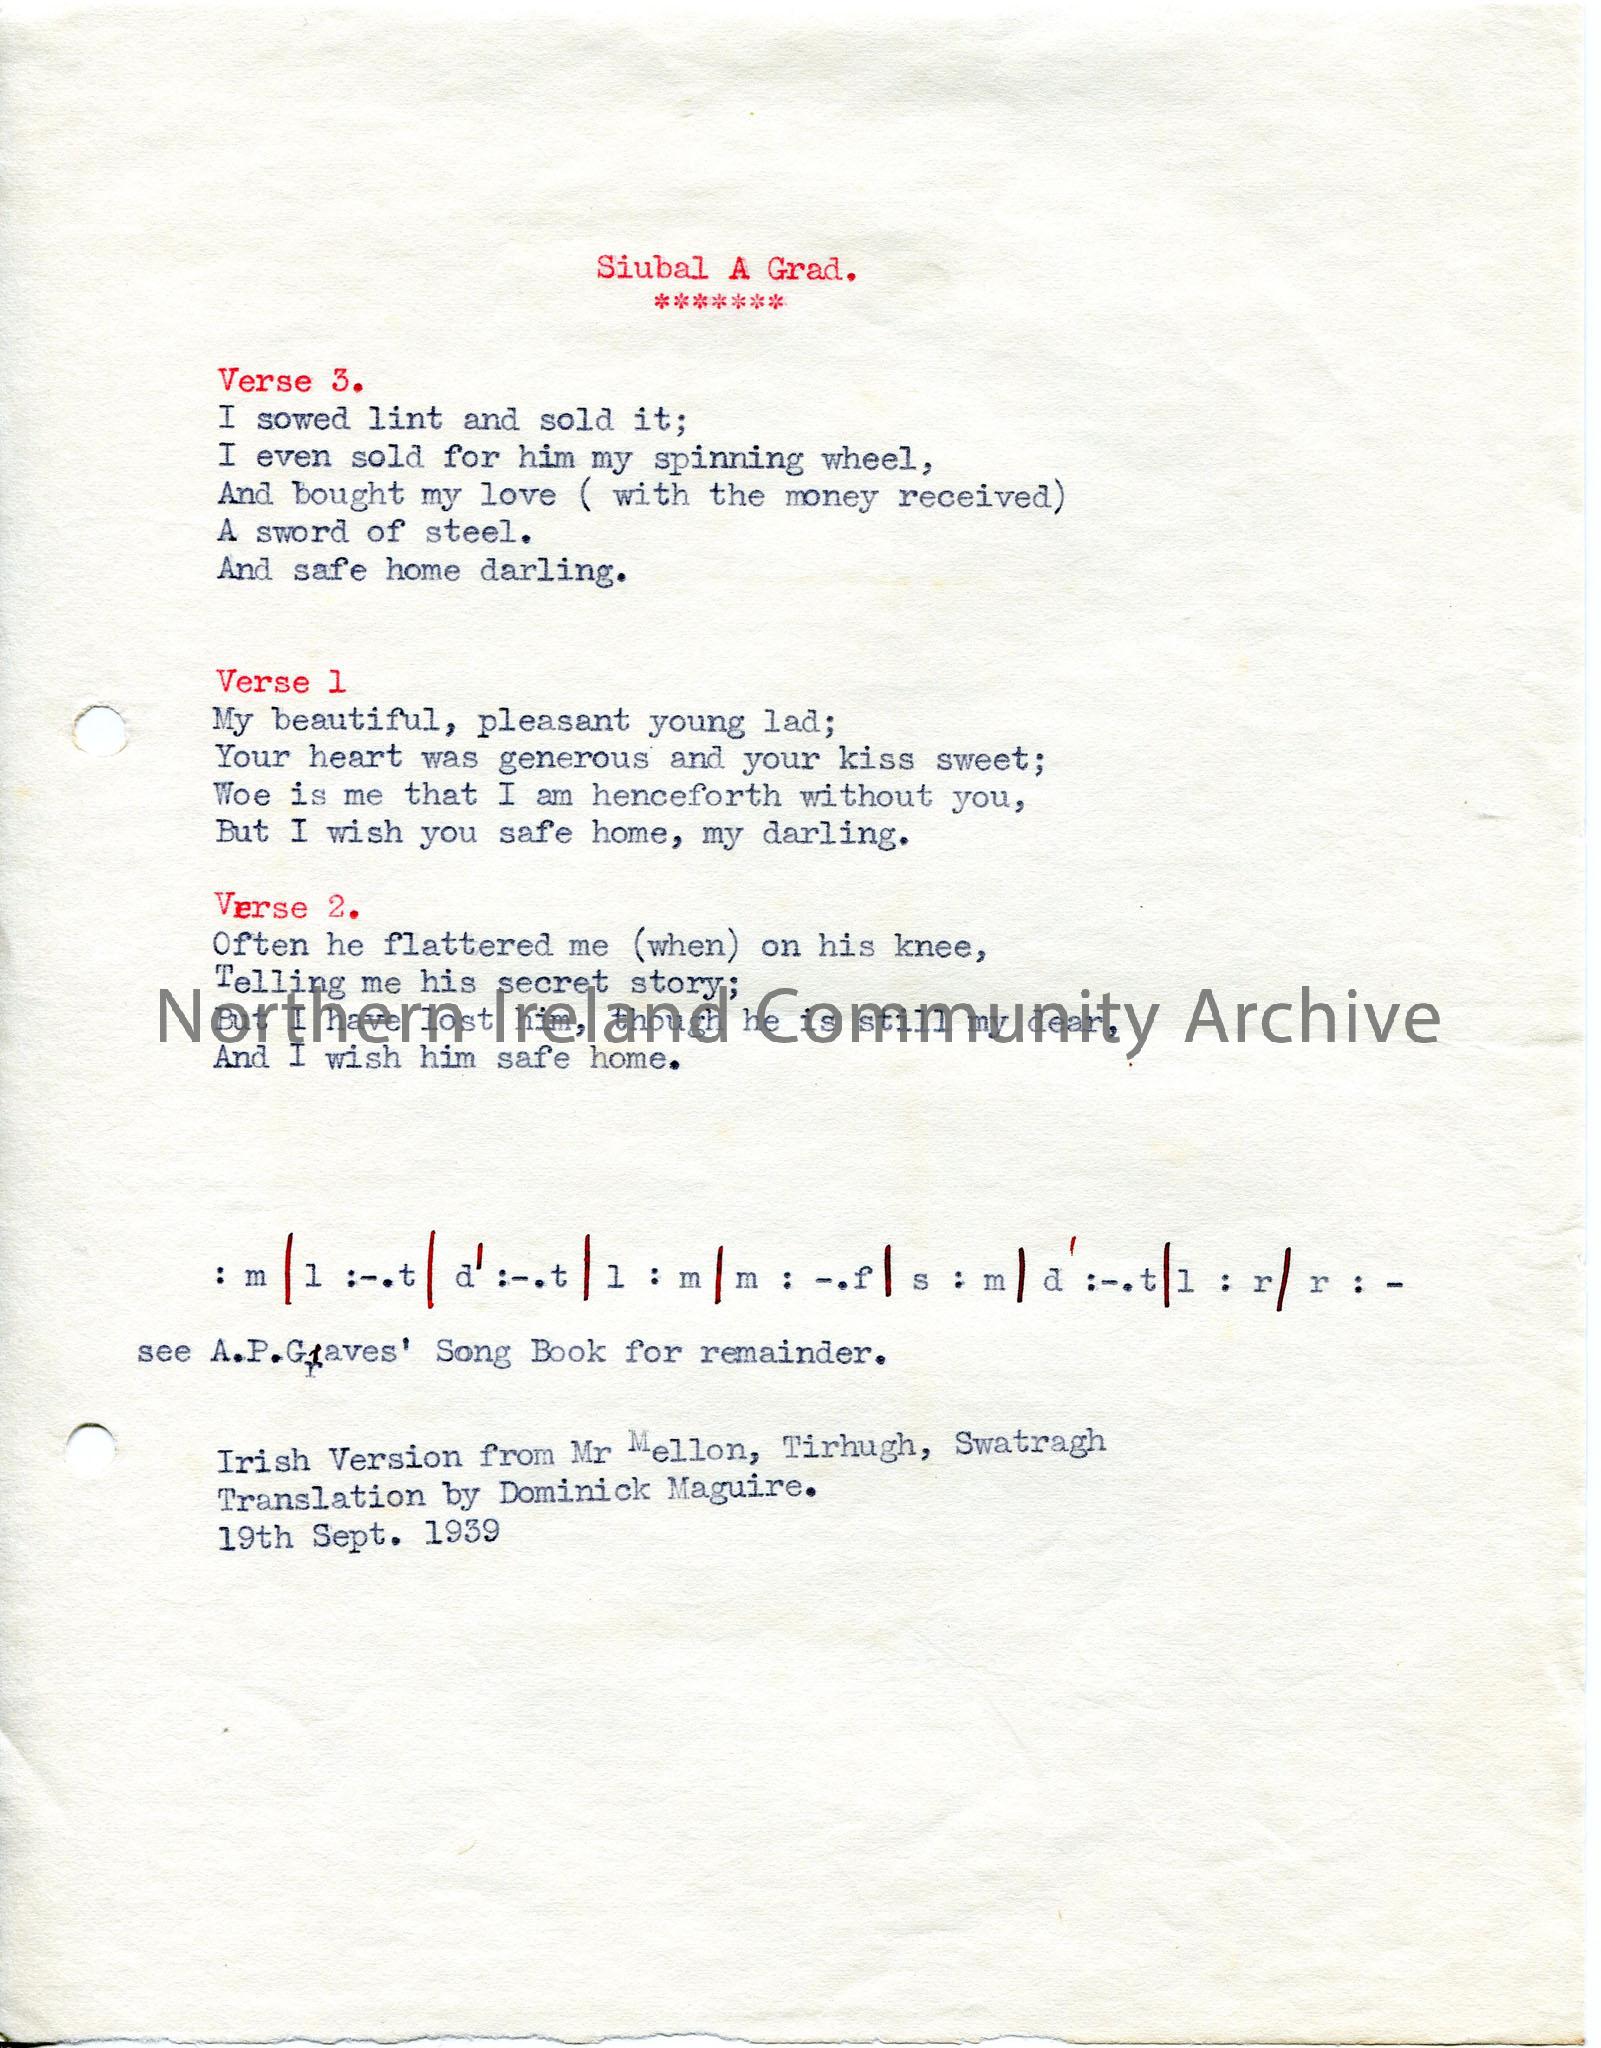 Siubal A Grad.
*******
Verse 3.
I sowed lint and sold it;
I even sold for him my spinning wheel,
And bought my love ( with the money received)
A sword of steel.
And safe home darling.
Verse 1
My beautiful, pleasant young lad;
Your heart was generous and your kiss sweet;
Woe is me that I am henceforth without you,
But I wish you safe home, my darling.
Verse 2.
Often he flattered me (when) on his knee,
Telling me his secret story;
But I have lost him, though he is still my dear,
And I wish him safe home.
Northern Ireland Community Archive
: m | l :-.t | d' :-.t | l : m | m : -.f | s : m | d' :-.t | l : r | r : -
see A.P.Graves' Song Book for remainder.
Irish Version from Mr Mellon, Tirhugh, Swatragh
Translation by Dominick Maguire.
19th Sept. 1939